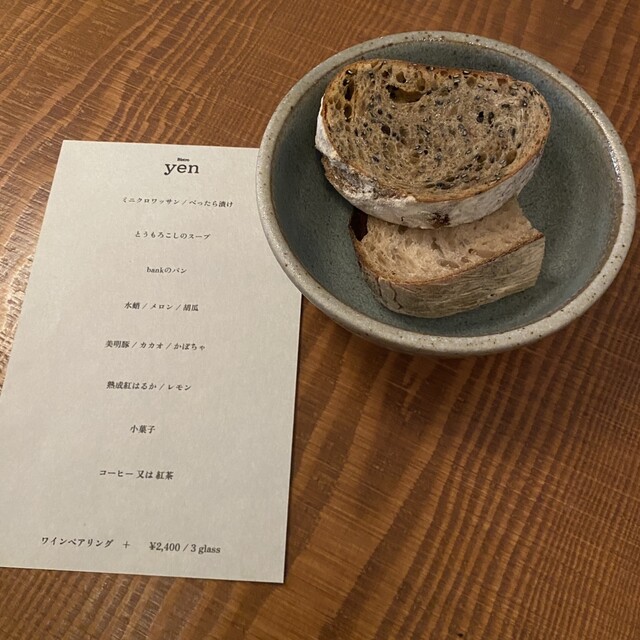 Bistro
yen
ミニクロワッサン / べったら漬け
とうもろこしのスープ
bankのパン
水蛸 / メロン / 胡瓜
美明豚 / カカオ / かぼちゃ
熟成紅はるか / レモン
小菓子
コーヒー 又は 紅茶
ワインペアリング + ¥2,400 / 3 glass